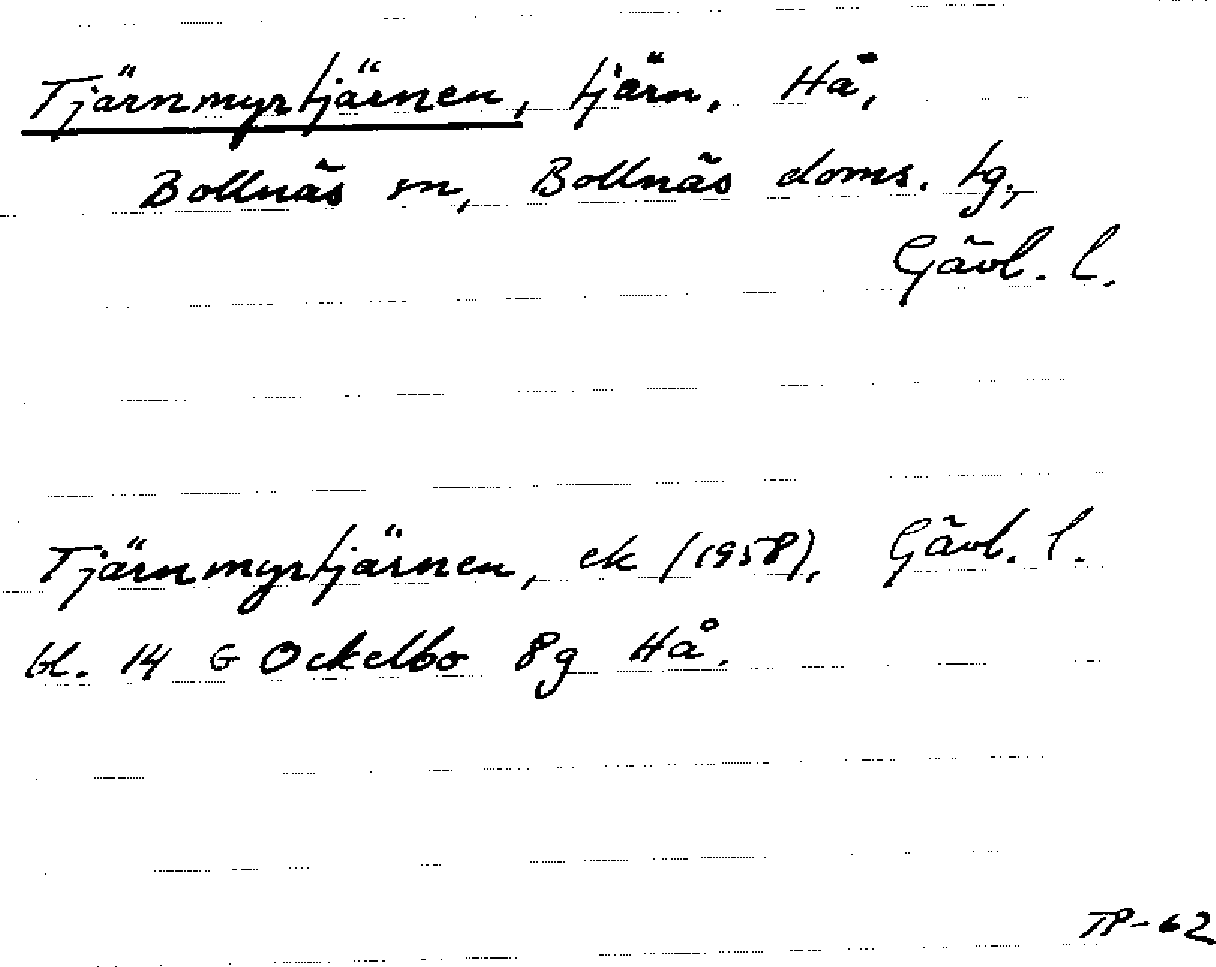 Tjärnmyrtjärnen, tjärn, Hå,
Bollnäs sn, Bollnäs doms. tg,
Gävl. l.
Tjärnmyrtjärnen, ek (1958), Gävl. l.
bl. 14 G Ockelbo 8g Hå.
TP-62